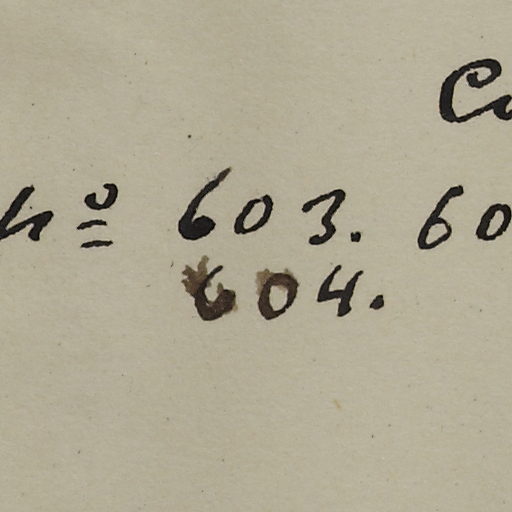 Nº 603. 60
604.